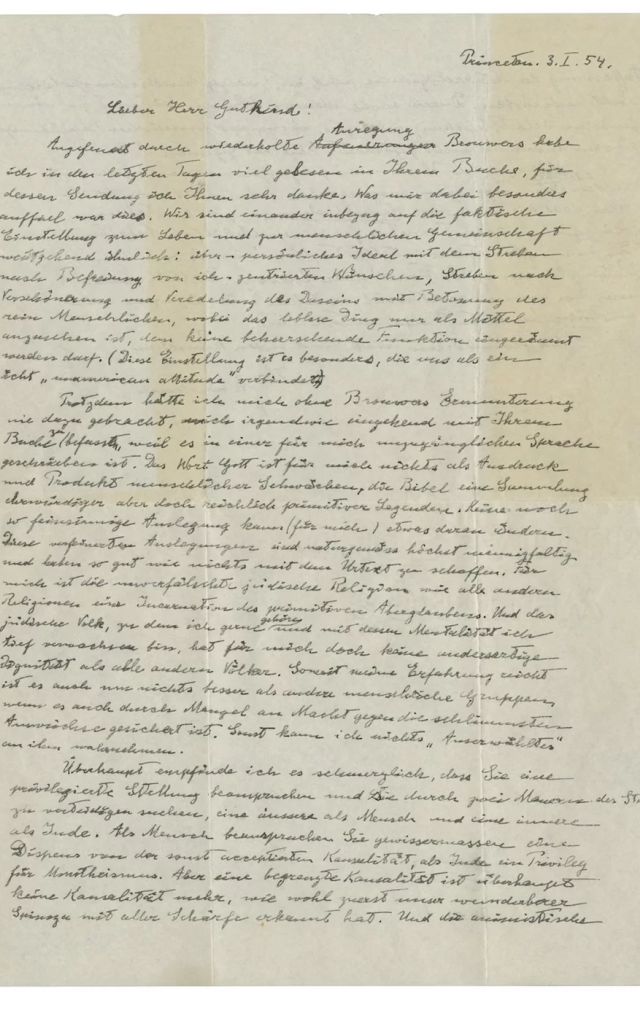 Princeton. 3. I. 54.
Lieber Herr Gutkind!
Anregung
Angefeuert durch wiederholte Brouwers habe
ich in den letzten Tagen viel gelesen in Ihrem Buche, für
dessen Sendung ich Ihnen sehr danke. Was mir dabei besonders
auffiel war dies. Wir sind einander inbezug auf die faktische
Einstellung zum Leben und zur menschlichen Gemeinschaft
weitgehend ähnlich: über-persönliches Ideal mit dem Streben
nach Befreiung von ich-zentrierten Wünschen, Streben nach
Verschönerung und Veredelung des Daseins mit Betonung des
rein Menschlichen, wobei das leblose Ding nur als Mittel
anzusehen ist, dem keine beherrschende Funktion eingeräumt
werden darf. (Diese Einstellung ist es besonders, die uns als ein
echt „unamerican attitude" verbindet)
Trotzdem hätte ich mich ohne Brouwers Ermunterung
nie dazu gebracht, mich irgendwie eingehend mit Ihrem
Buche zu befassen, weil es in einer für mich unzugänglichen Sprache
geschrieben ist. Das Wort Gott ist für mich nichts als Ausdruck
und Produkt menschlicher Schwächen, die Bibel eine Sammlung
ehrwürdiger aber doch reichlich primitiver Legenden. Keine noch
so feinsinnige Auslegung kann (für mich) etwas daran ändern.
Diese verfeinerten Auslegungen sind naturgemäss höchst mannigfaltig
und haben so gut wie nichts mit dem Urtext zu schaffen. Für
mich ist die unverfälschte jüdische Religion wie alle anderen
Religionen eine Incarnation des primitiven Aberglaubens. Und das
jüdische Volk, zu dem ich gerne gehöre und mit dessen Mentalität ich
tief verwachsen bin, hat für mich doch keine andersartige
Dignität als alle andern Völker. Soweit meine Erfahrung reicht
ist es auch um nichts besser als andere menschliche Gruppen,
wenn es auch durch Mangel an Macht gegen die schlimmsten
Auswüchse gesichert ist. Sonst kann ich nichts „Auserwähltes"
an ihm wahrnehmen.
Überhaupt empfinde ich es schmerzlich, dass Sie eine
privilegierte Stellung beanspruchen und sie durch zwei Mauern des Sto
zu verteidigen suchen, eine äussere als Mensch und eine innere
als Jude. Als Mensch beanspruchen Sie gewissermassen einen
Dispens von der sonst acceptierten Kausalität, als Jude ein Privileg
für Monotheismus. Aber eine begrenzte Kausalität ist überhaupt
keine Kausalität mehr, wie wohl zuerst unser wunderbarer
Spinoza mit aller Schärfe erkannt hat. Und die animistische